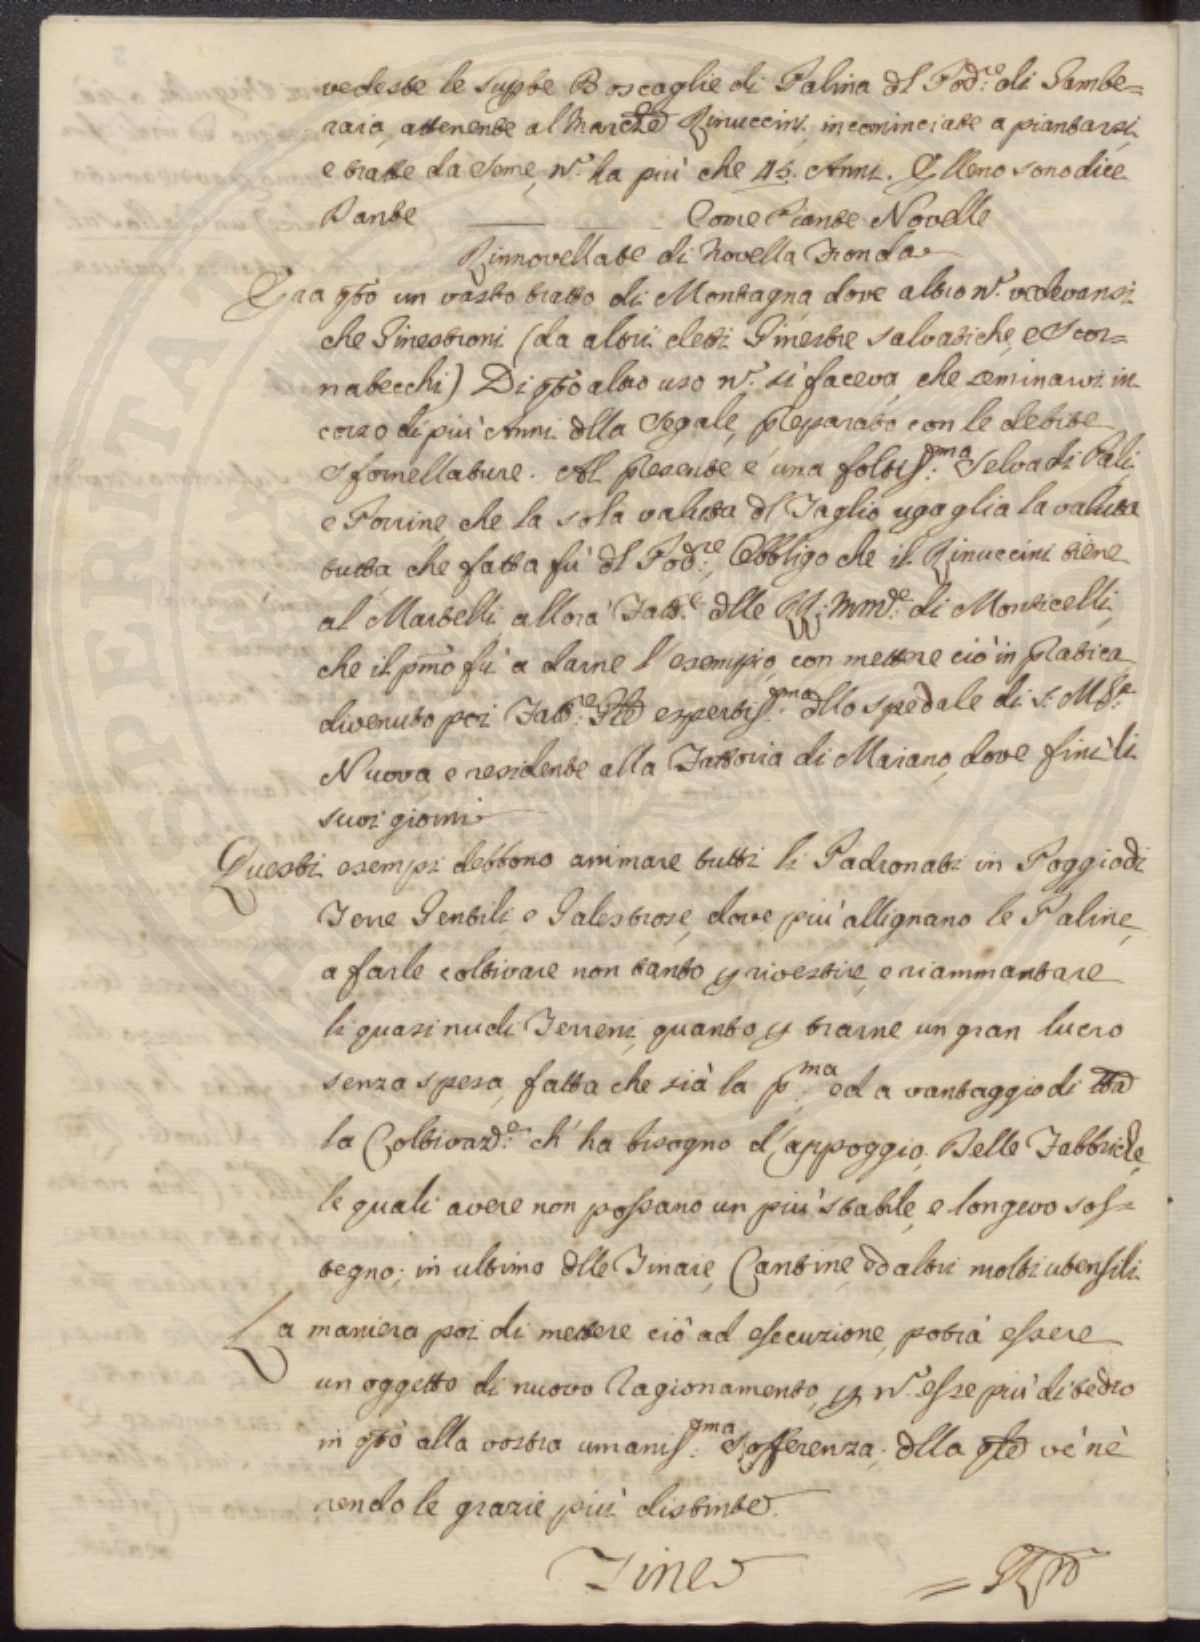 vedeste le suppte Boscaglie di Palina dl Podre: di Gambe=
raia, attenente al Marche Rinuccini, incominciate a piantarsi,
e tratte da Seme, n. ha più che 45. Anni. Elleno sono dice
Dante Come Piante Novelle
Rinnovellate di Novella Fronda
Era qto un vasto tratto di Montagna, dove altro n. vedevansi
che Ginestroni (da altri detti Ginestre salvatiche, e Scor=
nabecchi) Di qto altro uso n. si faceva, che seminarvi in
corso di più Anni dlla Segale, preparato con le debite
Sfornellature. Al presente è una foltiss:ma Selva di Pali,
e Forcine, che la sola valuta dl Taglio uguaglia la valuta
tutta che fatta fù dl Podre:, Obbligo che il Rinuccini tiene
al Martelli, allora Fatt:e dlle RR: MMe: di Monticelli,
che il pmo fù a darne l'esempio, con mettere ciò in pratica
divenuto poi Fatt:re espertiss:mo dllo spedale di S: Mria:
Nuova, e residente alla Fattoria di Maiano, dove finì li
suoi giorni
Questi esempi debbono animare tutti li Padronati in Poggio di
Terre Gentili, e Galestrose, dove più allignano le Paline,
a farle coltivare non tanto p rivestire, e riammantare
li quasi nudi Terreni, quanto p trarne un gran lucro
senza spesa, fatta che sià la p:ma ed a vantaggio di tta
la Coltivaze: ch'ha bisogno d'appoggio. Delle Fabbriche,
le quali avere non possano un più stabile, e longevo sos=
tegno; in ultimo dlle Tinaie, Cantine, ed altri molti utensili.
La maniera poi di mettere ciò ad esecuzione, potrà essere
un oggetto di nuovo Ragionamento, p n. esse più di tedio
in qto alla vostra umaniss:ma Sofferenza; dlla qle ve ne
rendo le grazie più distinte.
Fine